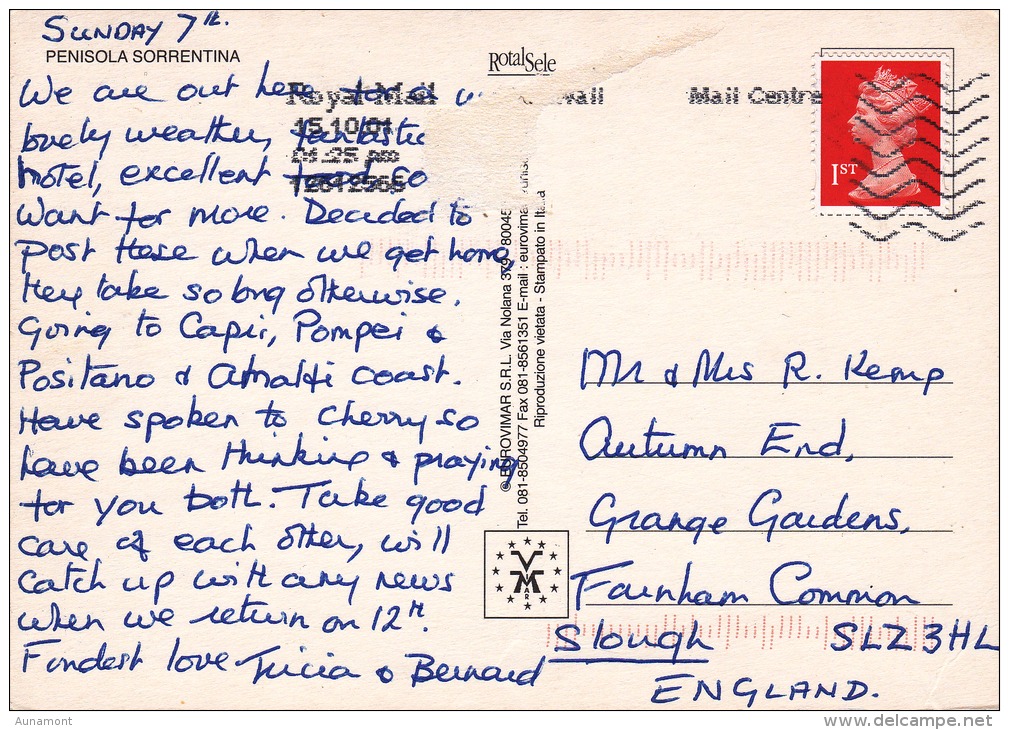 SUNDAY 7th.
PENISOLA SORRENTINA
RotalSele
We are out here to a
lovely weather, fantastic
hotel, excellent food so
want for more. Decided to
post these when we get home,
they take so long otherwise.
Going to Capir, Pompei &
Positano & Amalfi coast.
Have spoken to Cherry so
have been thinking & praying
for you both. Take good
care of each other, will
catch up with any news
when we return on 12th.
Fondest love Tricia & Bernard
Royal Mail
Mail Centre
15.10.01
01.25 pm
1ST
© EUROVIMAR S.R.L. Via Nolana 80045
Tel. 081-8504977 Fax 081-8561351 E-mail : eurovimar
Riproduzione vietata - Stampato in Italia
VIMAR
Mr & Mrs R. Kemp
Autumn End,
Grange Gardens,
Farnham Common
Slough SL2 3HL
ENGLAND.
Aunamont
delcampe.net